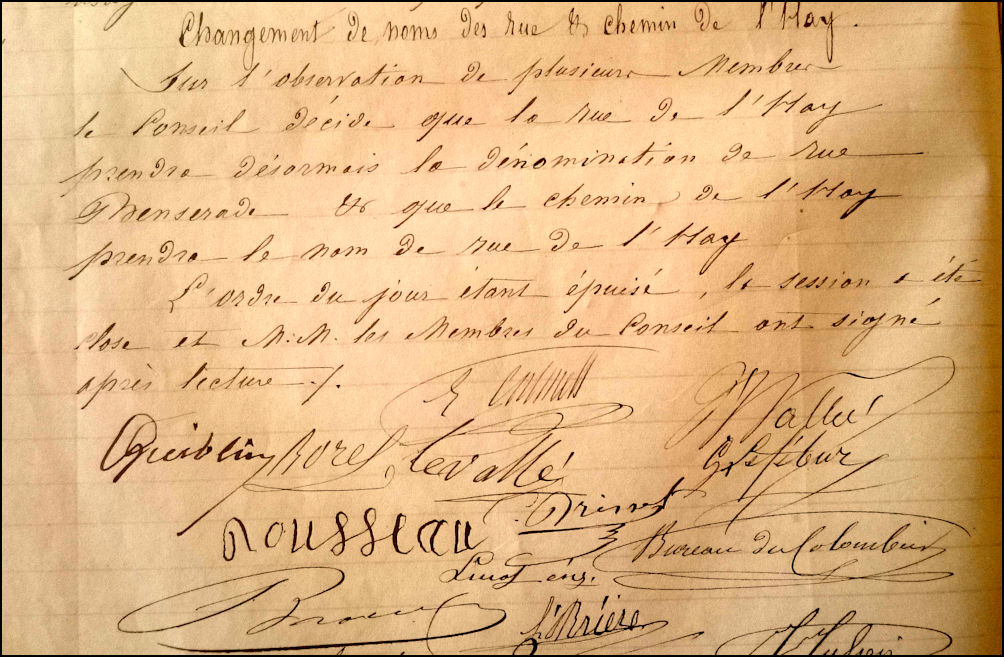 Changement de noms des rue & chemin de l'Hay.
Sur l'observation de plusieurs Membres
le Conseil décide que la rue de l'Hay
prendra désormais la dénomination de rue
Benserade & que le chemin de l'Hay
prendra le nom de rue de l'Hay
L'ordre du jour étant épuisé, la session a été
close et M.M. les Membres du Conseil ont signé
après lecture ./.
Vallé
Quiblin Borel Levallé G Lefébur
Rousseau
Bureau du Colombier